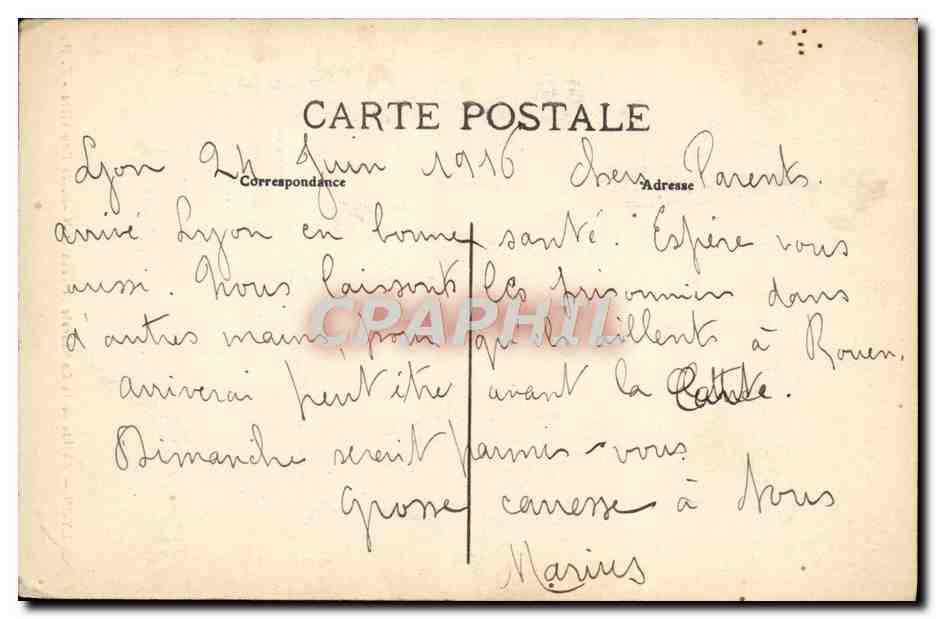 CARTE POSTALE
Correspondance Adresse
Lyon 24 Juin 1916 Chers Parents.
arrivé Lyon en bonne santé. Espère vous
aussi. Nous laissont les prisonnier dans
d'autres mains pour qu'il aillents à Rouen.
arriverai peut être avant la
Dimanche serait parmis-vous
Grosse caresse à Nous
Marius
CPAPHIL